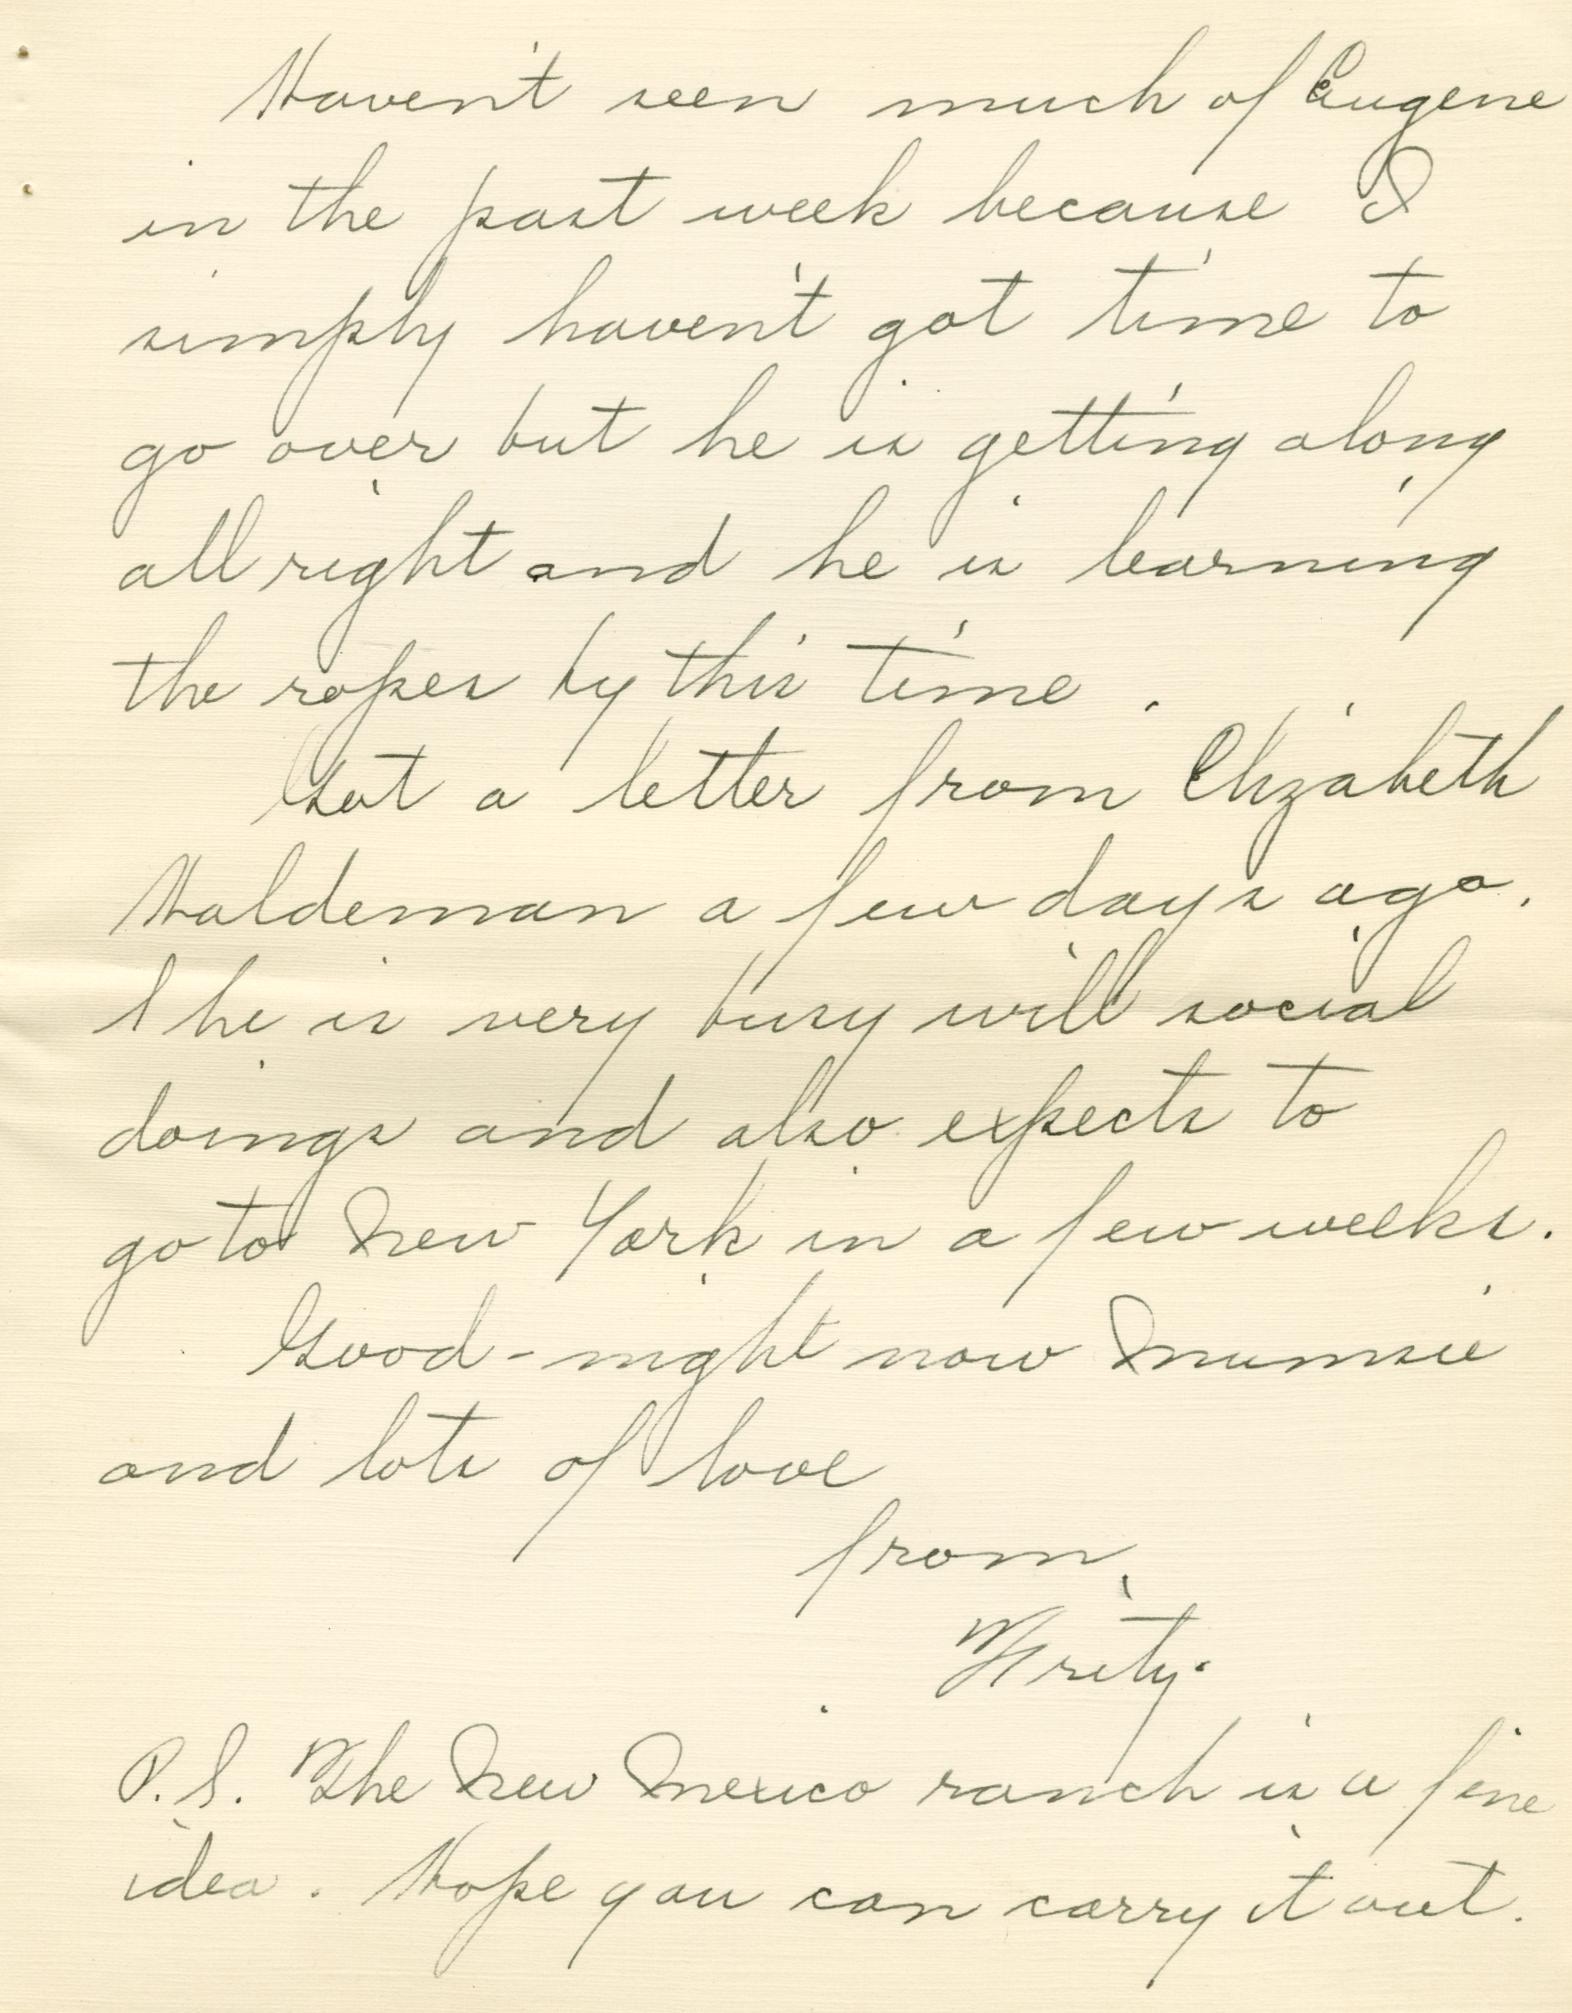 Haven't seen much of Eugene
in the past week because I
simply haven't got time to
go over but he is getting along
all right and he is learning
the ropes by this time.
Got a letter from Elizabeth
Haldeman a few days ago.
She is very busy will social
doings and also expects to
go to New York in a few weeks.
Good-night now Mumsie
and lots of love
from,
Frity.
P.S. The New Mexico ranch is a fine
idea. Hope you can carry it out.